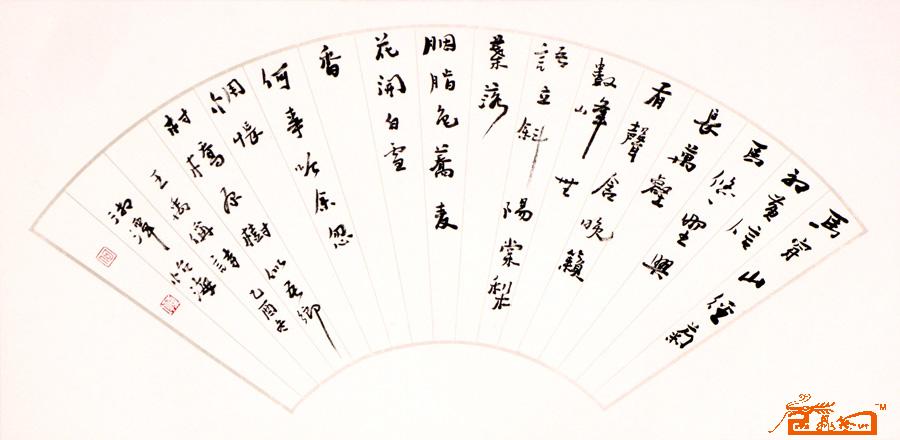 馬穿山徑菊
初黃信
馬悠悠野興
長萬壑
有聲含晚籟
數峰無
語立斜陽棠梨
葉落
胭脂色蕎麥
花開白雪
香
何事吟余忽
惆悵
村橋原樹似吾鄉
王禹偁詩乙酉冬
湘潭怡海